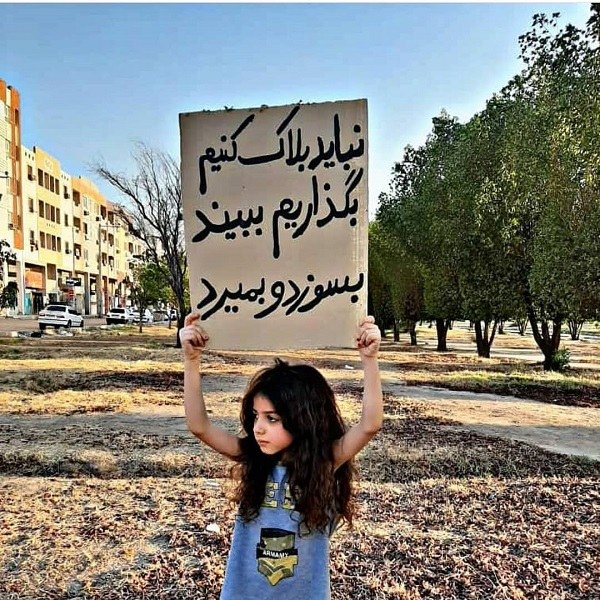 نباید بلاک کنیم
بگذاریم ببیند
بسوزد و بمیرد
ARMAMY